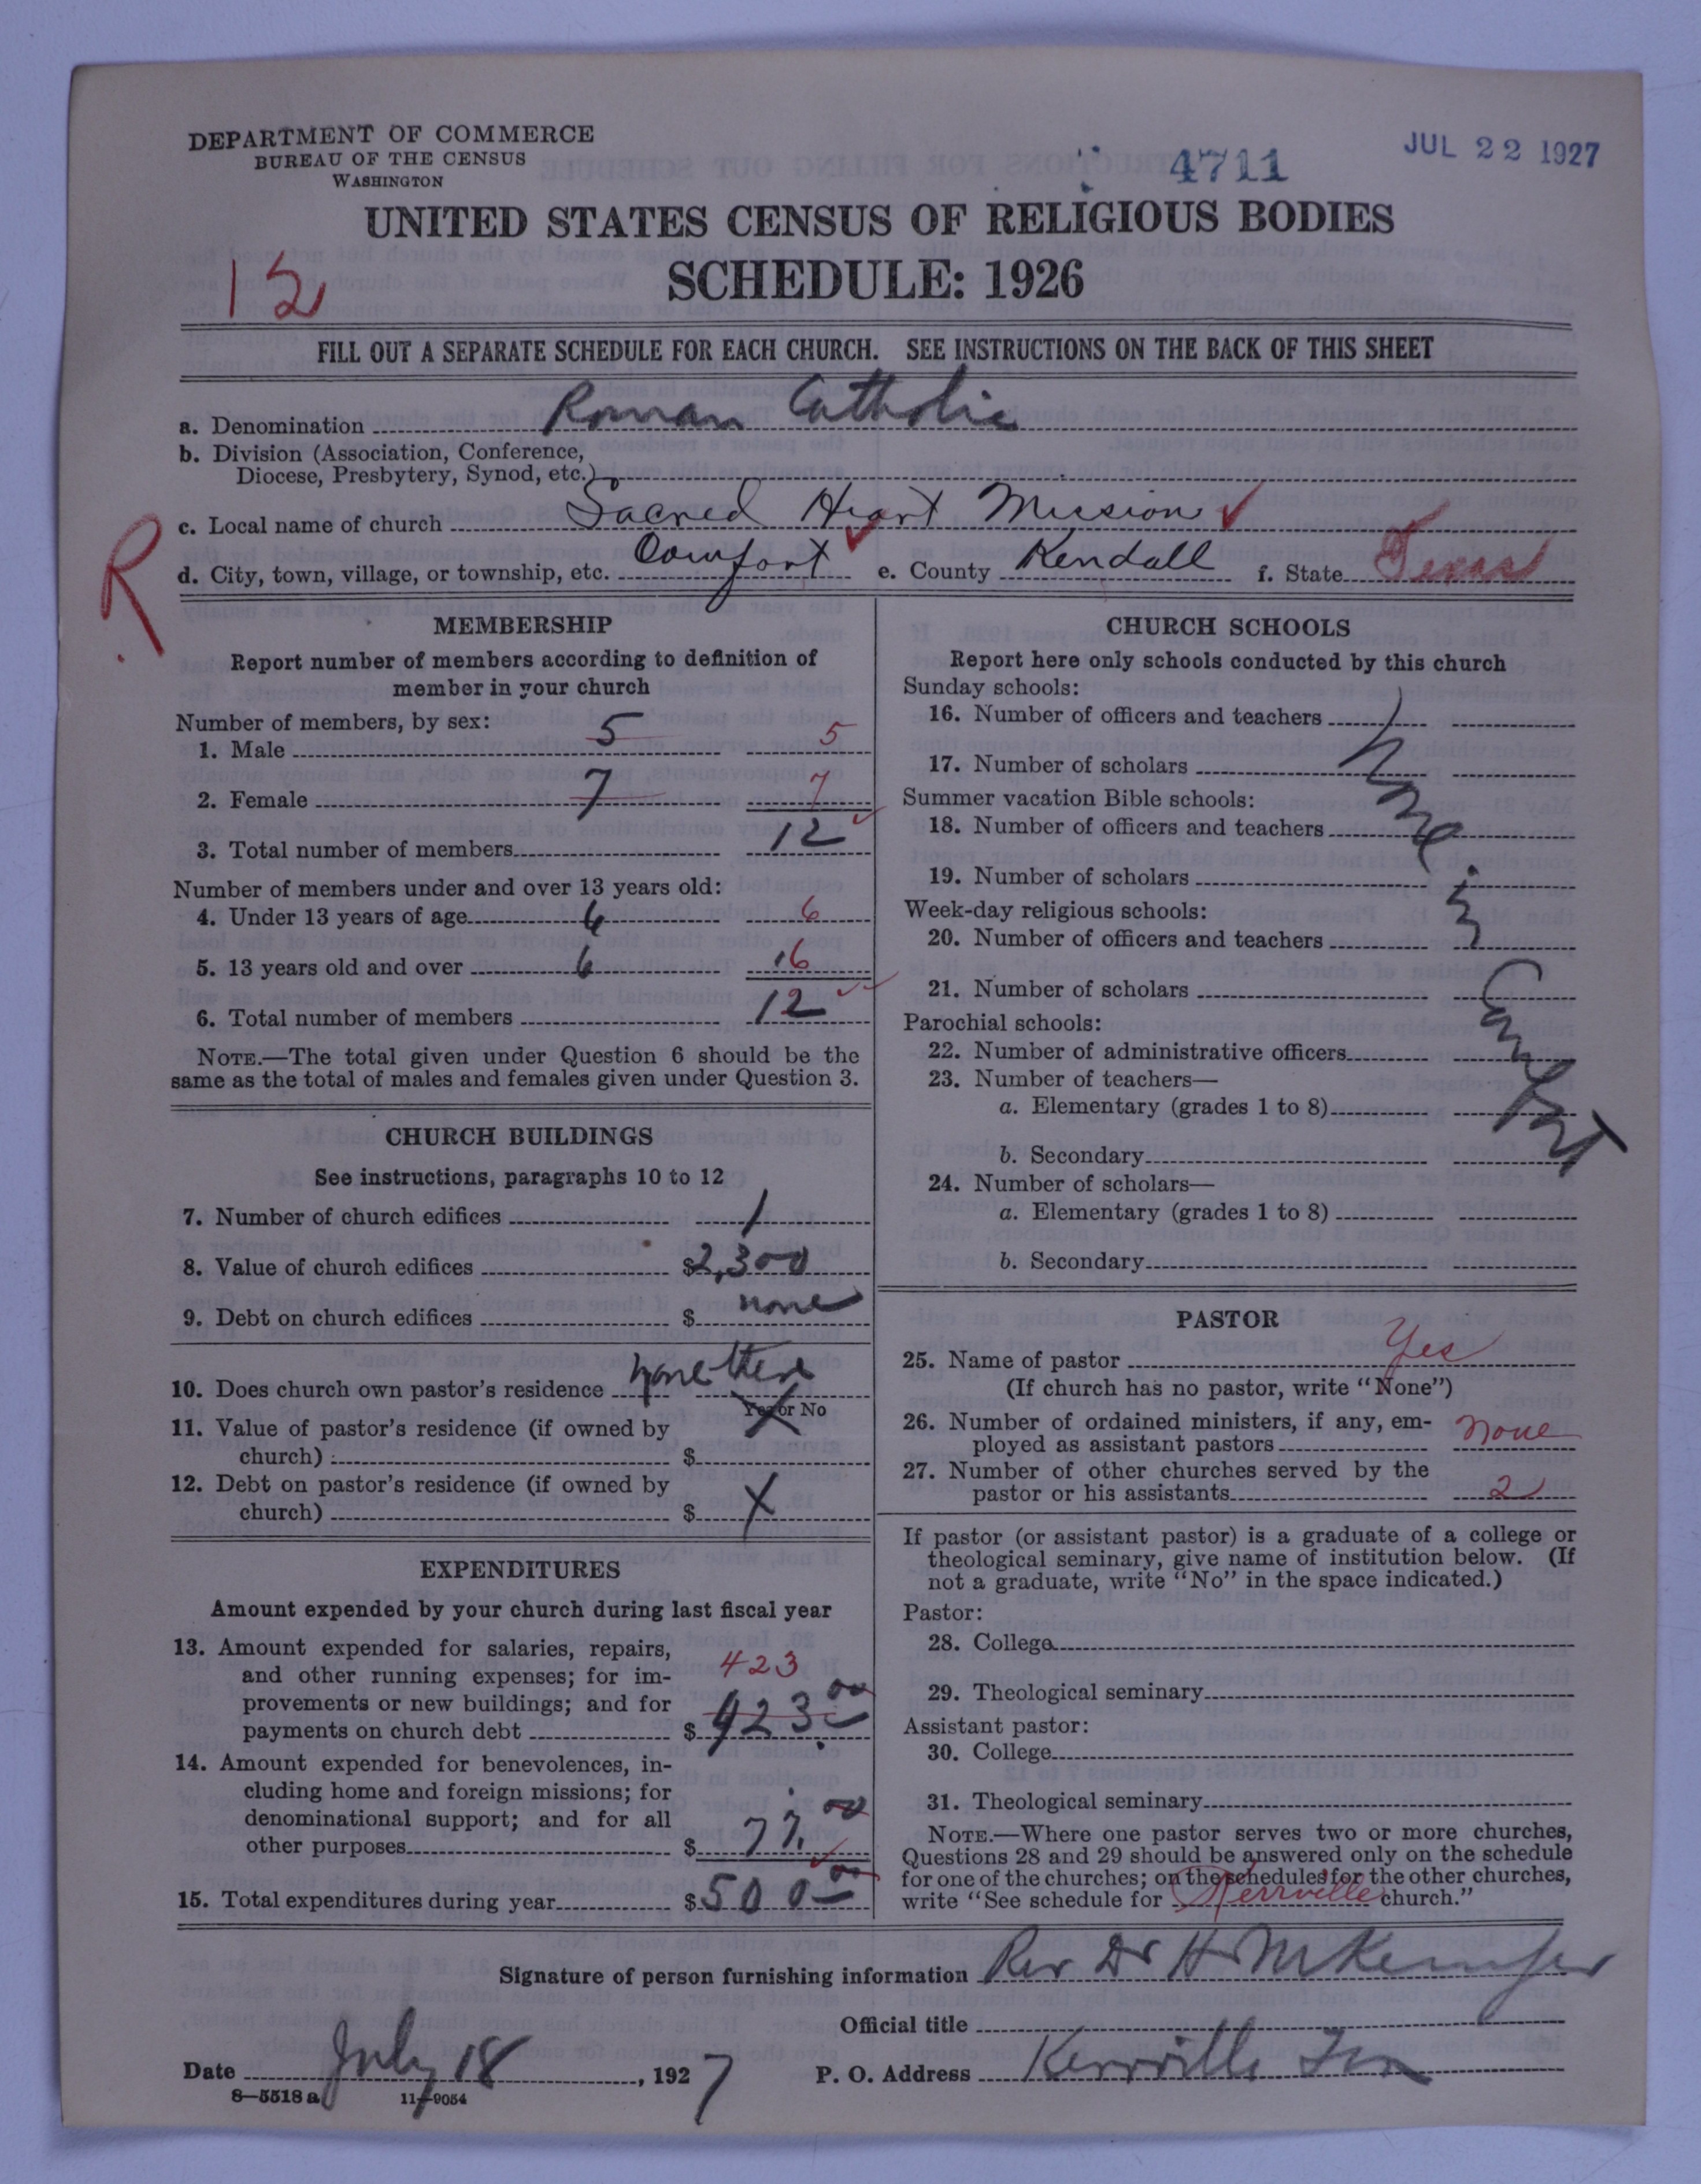 DEPARTMENT OF COMMERCE
BUREAU OF THE CENSUS
WASHINGTON
4711
JUL 22 1927
UNITED STATES CENSUS OF RELIGIOUS BODIES
SCHEDULE: 1926
12
FILL OUT A SEPARATE SCHEDULE FOR EACH CHURCH. SEE INSTRUCTIONS ON THE BACK OF THIS SHEET
a. Denomination Roman Catholic
b. Division (Association, Conference,
Diocese, Presbytery, Synod, etc.)
c. Local name of church Sacred Heart Mission
R
d. City, town, village, or township, etc. Comfort e. County Kendall f. State Texas
MEMBERSHIP
Report number of members according to definition of
member in your church
Number of members, by sex:
1. Male 5 5
2. Female 7 7
3. Total number of members 12
Number of members under and over 13 years old:
4. Under 13 years of age 6 6
5. 13 years old and over 6 6
6. Total number of members 12
NOTE.—The total given under Question 6 should be the
same as the total of males and females given under Question 3.
CHURCH BUILDINGS
See instructions, paragraphs 10 to 12
7. Number of church edifices 1
8. Value of church edifices $2,300
9. Debt on church edifices $ none
10. Does church own pastor's residence none there
Yes or No
11. Value of pastor's residence (if owned by
church) $ X
12. Debt on pastor's residence (if owned by
church) $ X
EXPENDITURES
Amount expended by your church during last fiscal year
13. Amount expended for salaries, repairs,
and other running expenses; for im- 423
provements or new buildings; and for
payments on church debt $ 423.00
14. Amount expended for benevolences, in-
cluding home and foreign missions; for
denominational support; and for all
other purposes $ 77.00
15. Total expenditures during year $ 500.00
CHURCH SCHOOLS
Report here only schools conducted by this church
Sunday schools:
16. Number of officers and teachers
17. Number of scholars
Summer vacation Bible schools:
18. Number of officers and teachers
19. Number of scholars
Week-day religious schools:
20. Number of officers and teachers
21. Number of scholars
Parochial schools:
22. Number of administrative officers
23. Number of teachers—
a. Elementary (grades 1 to 8)
b. Secondary
24. Number of scholars—
a. Elementary (grades 1 to 8)
b. Secondary
none in Comfort
PASTOR
25. Name of pastor Yes
(If church has no pastor, write "None")
26. Number of ordained ministers, if any, em-
ployed as assistant pastors none
27. Number of other churches served by the
pastor or his assistants 2
If pastor (or assistant pastor) is a graduate of a college or
theological seminary, give name of institution below. (If
not a graduate, write "No" in the space indicated.)
Pastor:
28. College
29. Theological seminary
Assistant pastor:
30. College
31. Theological seminary
NOTE.—Where one pastor serves two or more churches,
Questions 28 and 29 should be answered only on the schedule
for one of the churches; on the schedules for the other churches,
write "See schedule for Kerrville church."
Signature of person furnishing information Rev Dr H
Official title
Date July 18, 1927 P. O. Address Kerrville Tex
8—5518a 11—9054